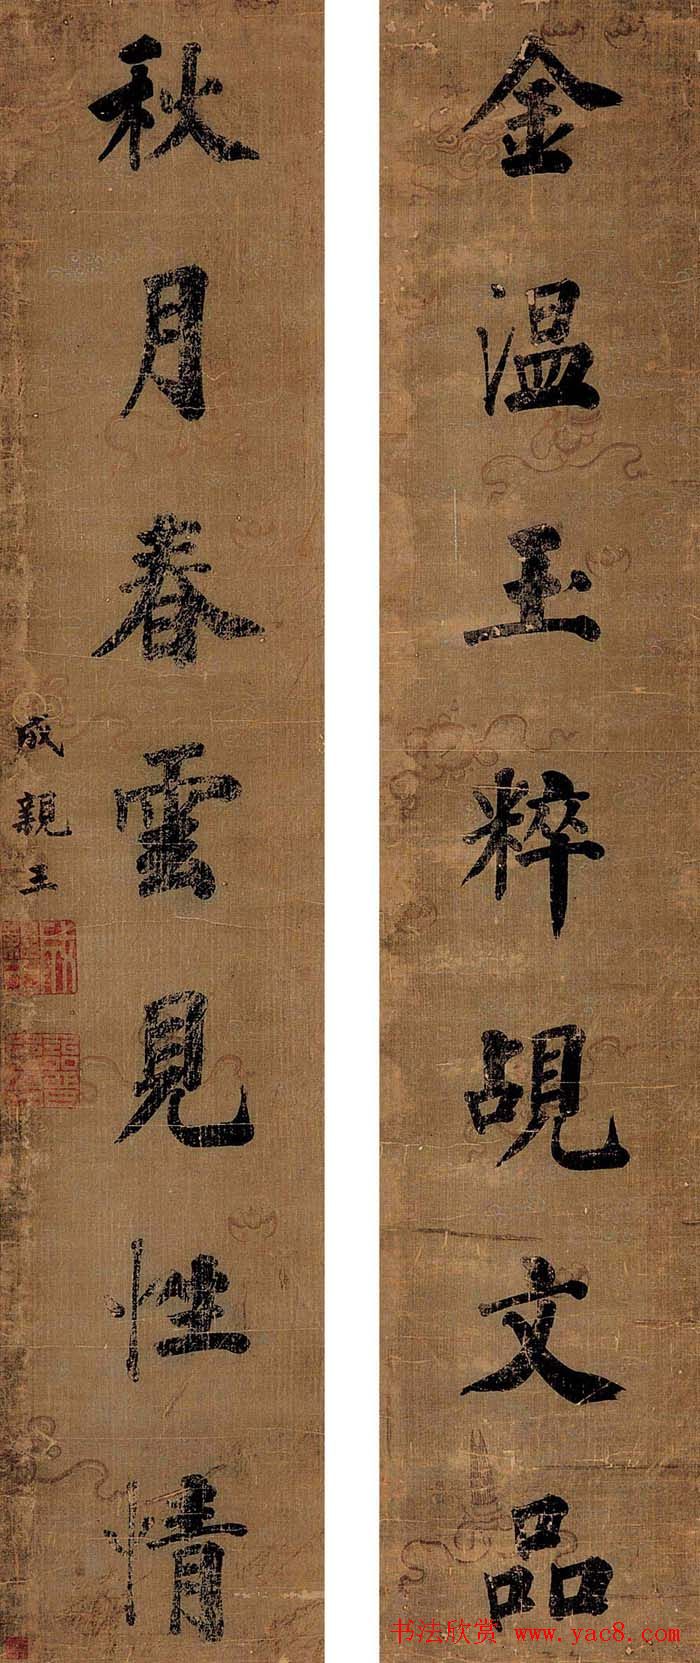 金温玉粹觇文品
秋月春雲見性情
成親王
书法欣赏 www.yac8.com